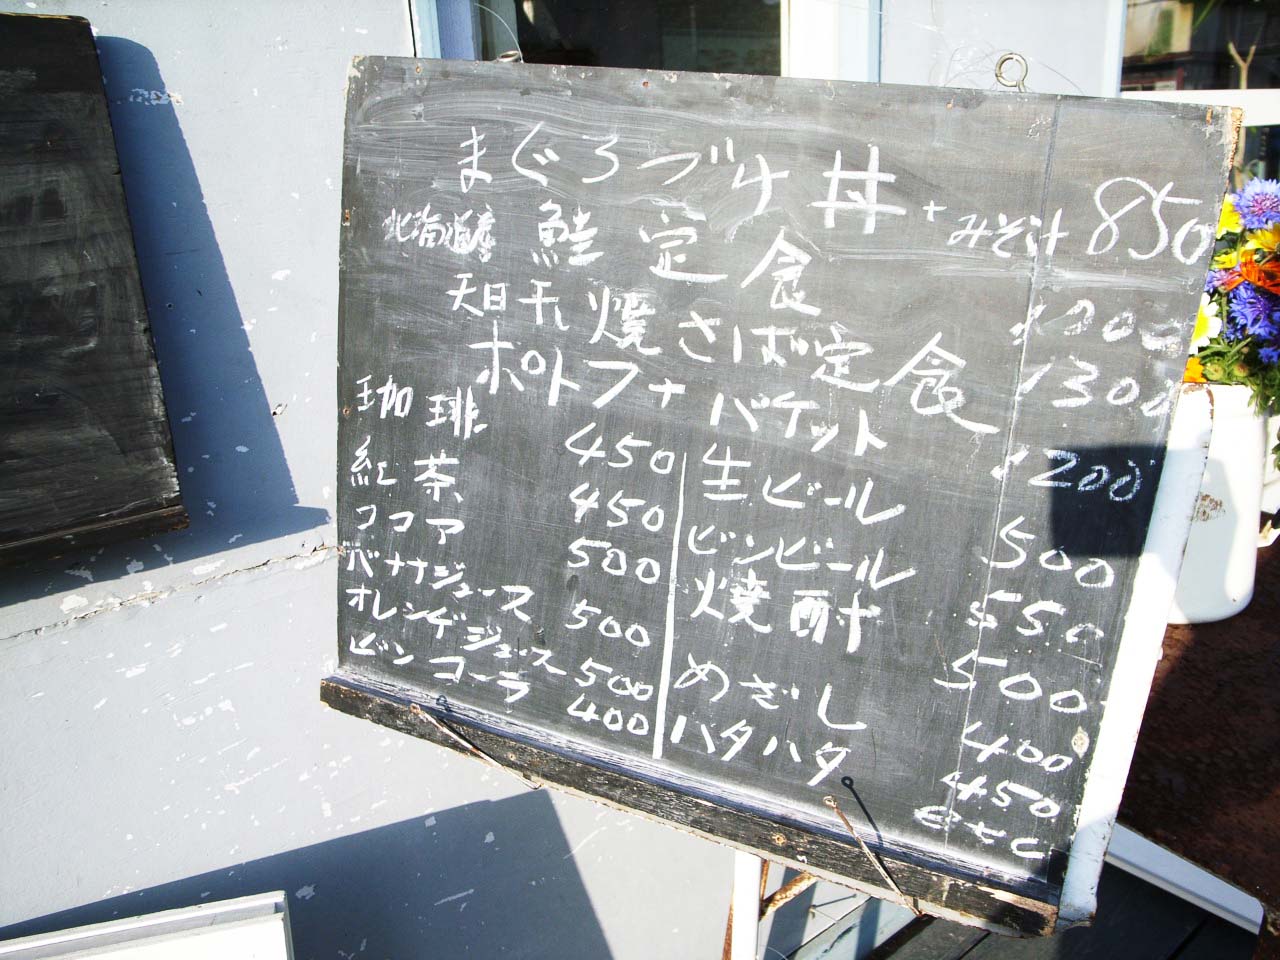 まぐろづけ丼+みそ汁 850
北海道産 鮭定食 1000
天日干焼さば定食 1300
ポトフ+バケット 1200
珈琲 450
紅茶 450
ココア 500
バナナジュース 500
オレンヂジュース 500
ビンコーラ 400
生ビール 500
ビンビール 550
焼酎 500
めざし 400
ハタハタ 450
etc